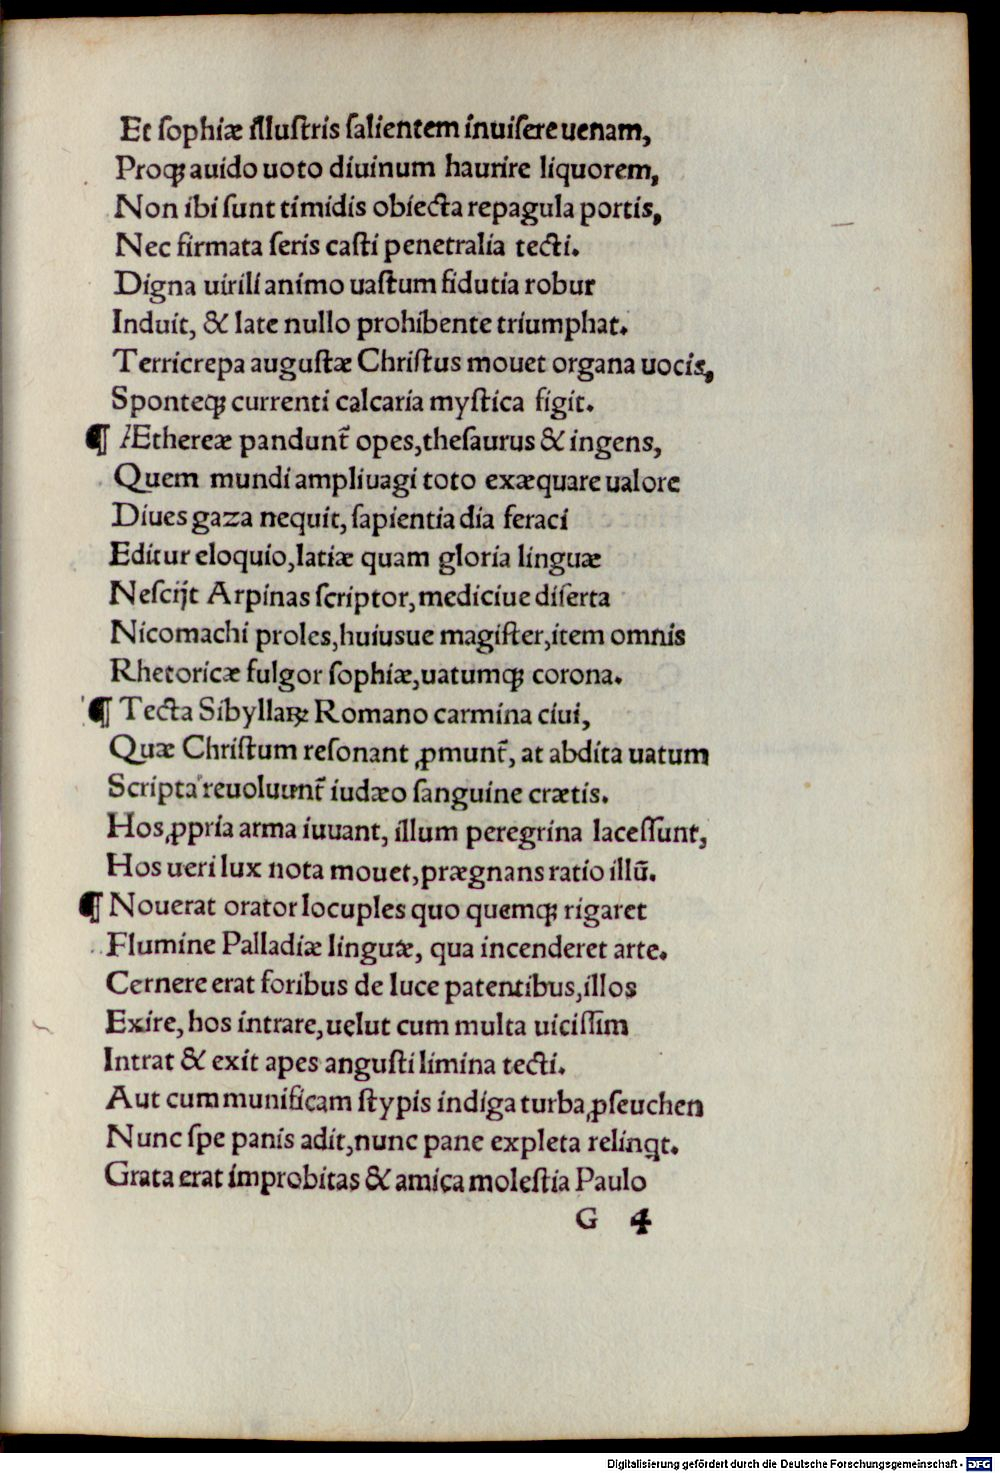 Et ſophiæ illuſtris ſalientem inuiſere uenam,
Proqꝫ auido uoto diuinum haurire liquorem,
Non ibi ſunt timidis obiecta repagula portis,
Nec firmata ſeris caſti penetralia tecti.
Digna uirili animo uaſtum fidutia robur
Induit, & late nullo prohibente triumphat.
Terricrepa auguſtæ Chriſtus mouet organa uocis,
Sponteqꝫ currenti calcaria myſtica figit.
¶ Æthereæ pandunt᷑ opes, theſaurus & ingens,
Quem mundi ampliuagi toto exæquare ualore
Diues gaza nequit, ſapientia dia feraci
Editur eloquio, latiæ quam gloria linguæ
Neſcijt Arpinas ſcriptor, mediciue diſerta
Nicomachi proles, huiusue magiſter, item omnis
Rhetoricæ fulgor ſophiæ, uatumqꝫ corona.
¶ Tecta Sibyllaꝝ Romano carmina ciui,
Quæ Chriſtum reſonant ꝓmunt᷑, at abdita uatum
Scripta reuoluunt᷑ iudæo ſanguine crætis.
Hos ꝓpria arma iuuant, illum peregrina laceſſunt,
Hos ueri lux nota mouet, prægnans ratio illū.
¶ Nouerat orator locuples quo quemqꝫ rigaret
Flumine Palladiæ linguæ, qua incenderet arte.
Cernere erat foribus de luce patentibus, illos
Exire, hos intrare, uelut cum multa uiciſſim
Intrat & exit apes anguſti limina tecti.
Aut cum munificam ſtypis indiga turba ꝓſeuchen
Nunc ſpe panis adit, nunc pane expleta relinqt.
Grata erat improbitas & amica moleſtia Paulo
G 4
Digitalisierung gefördert durch die Deutsche Forschungsgemeinschaft - DFG